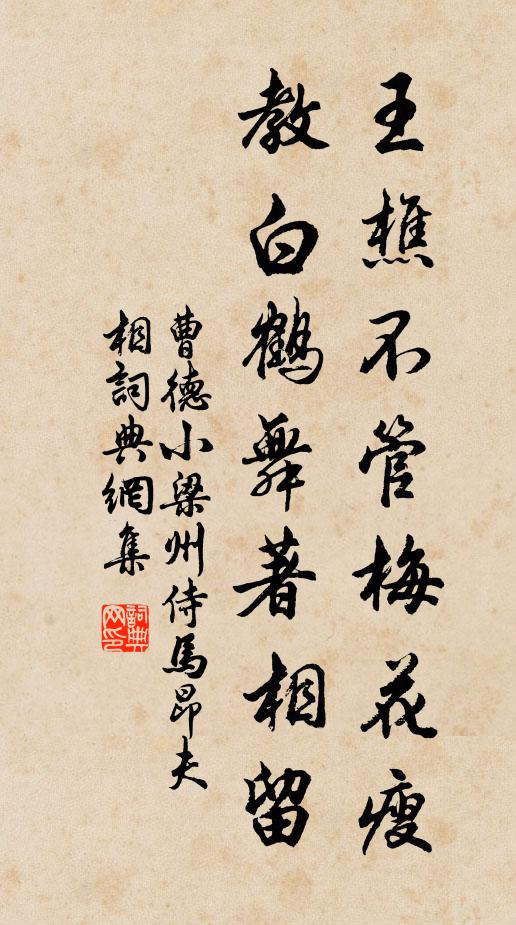 王樵不管梅花瘦
教白鶴舞著相留
曹德小梁州侍馬昂夫
相詞典網集
詞典網印